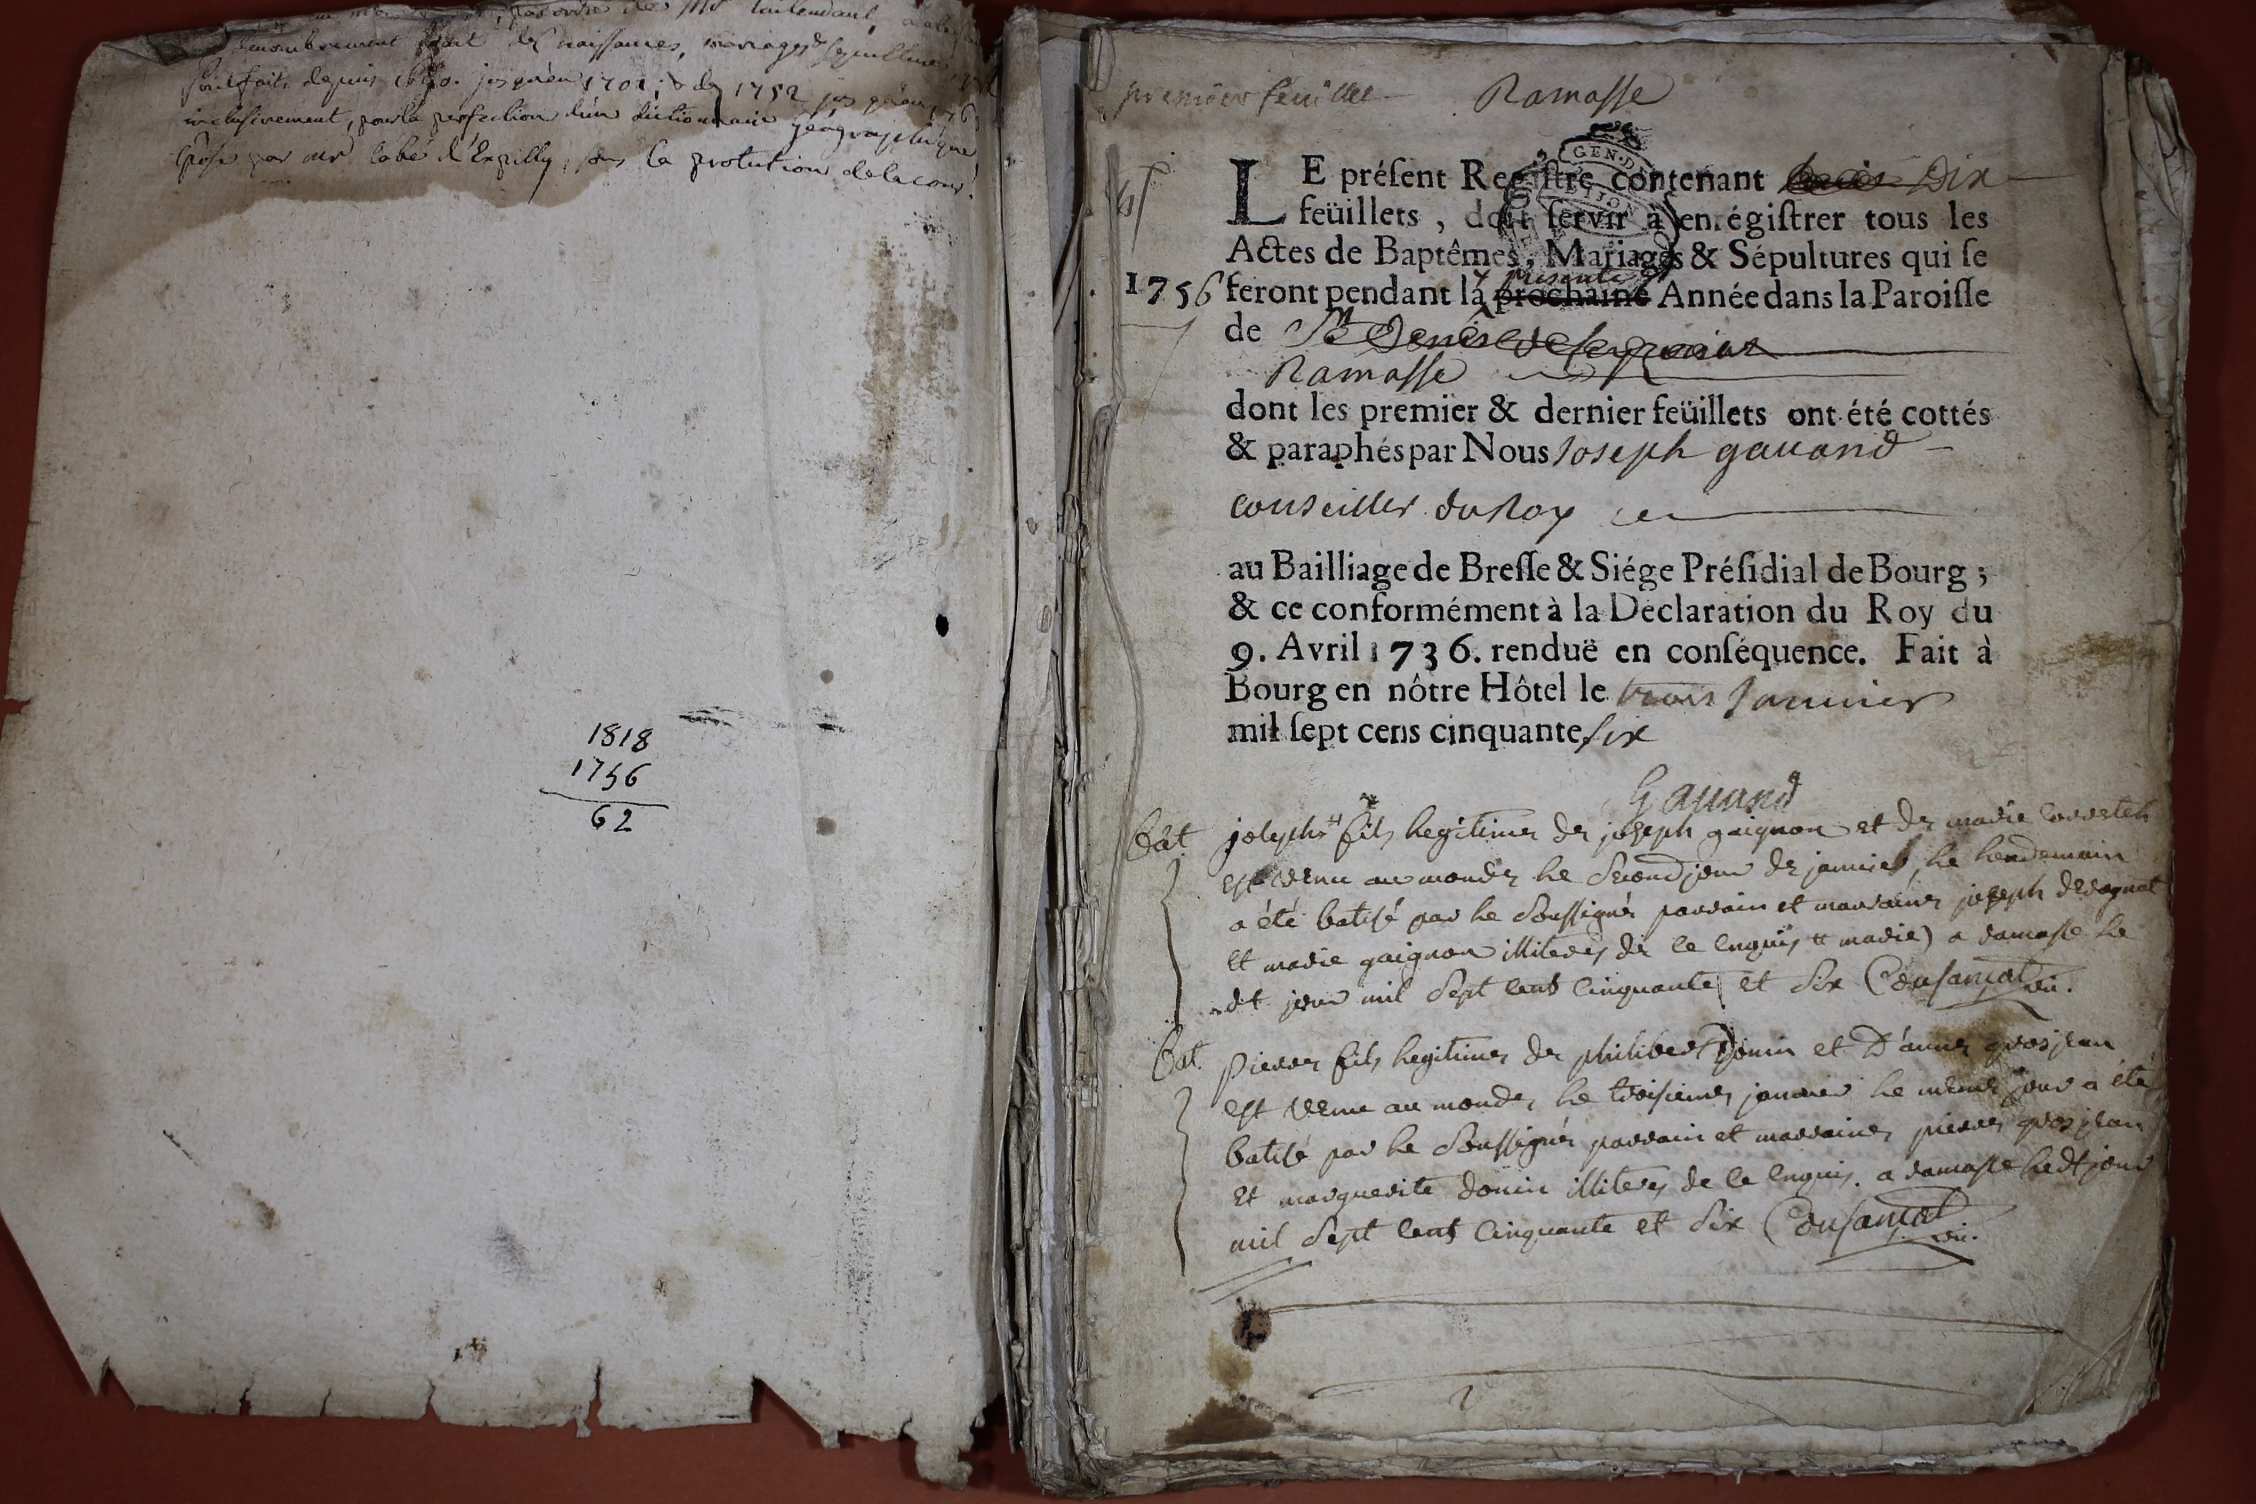 par ordre de Mr l'intendant
denombrement des naissances, mariages & sepultures
faits depuis 1690. jusqu'en 1701, & de 1752 jusqu'en
inclusivement, pour la perfection d'un dictionnaire géographique
par mr l'abé d'Expilly, sous la protection de la cour.
1818
1756
62
premier feuillet Ramasse
LE préſent Regiſtre contenant Dix
feüillets, doit ſervir à enrégiſtrer tous les
Actes de Baptêmes, Mariages & Sépultures qui ſe
1756 feront pendant la prochaine presente Année dans la Paroiſſe
de St Denis
Ramasse
dont les premier & dernier feüillets ont été cottés
& paraphés par Nous Joseph gauand
conseiller du Roy
au Bailliage de Breſſe & Siége Préſidial de Bourg;
& ce conformément à la Déclaration du Roy du
9. Avril 1736. renduë en conſéquence. Fait à
Bourg en nôtre Hôtel le trois Januier
mil ſept cens cinquante six
Gauand
bat. joseph fils legitime de joseph gaignon et de marie
est venu au monde le second jour de janvier, le lendemain
a été batisé par le soussigné parrain et marraine joseph
et marie gaignon illiteres de ce enquis a ramasse le
dt jour mil sept cent cinquante et six
bat. pierre fils legitime de philibert Donin et D'anne grosjean
est venu au monde le troisieme janvier le meme jour a été
batisé par le soussigné parrain et marraine pierre grosjean
et marguerite donin illiteres de ce enquis. a ramasse le dt jour
mil sept cent cinquante et six